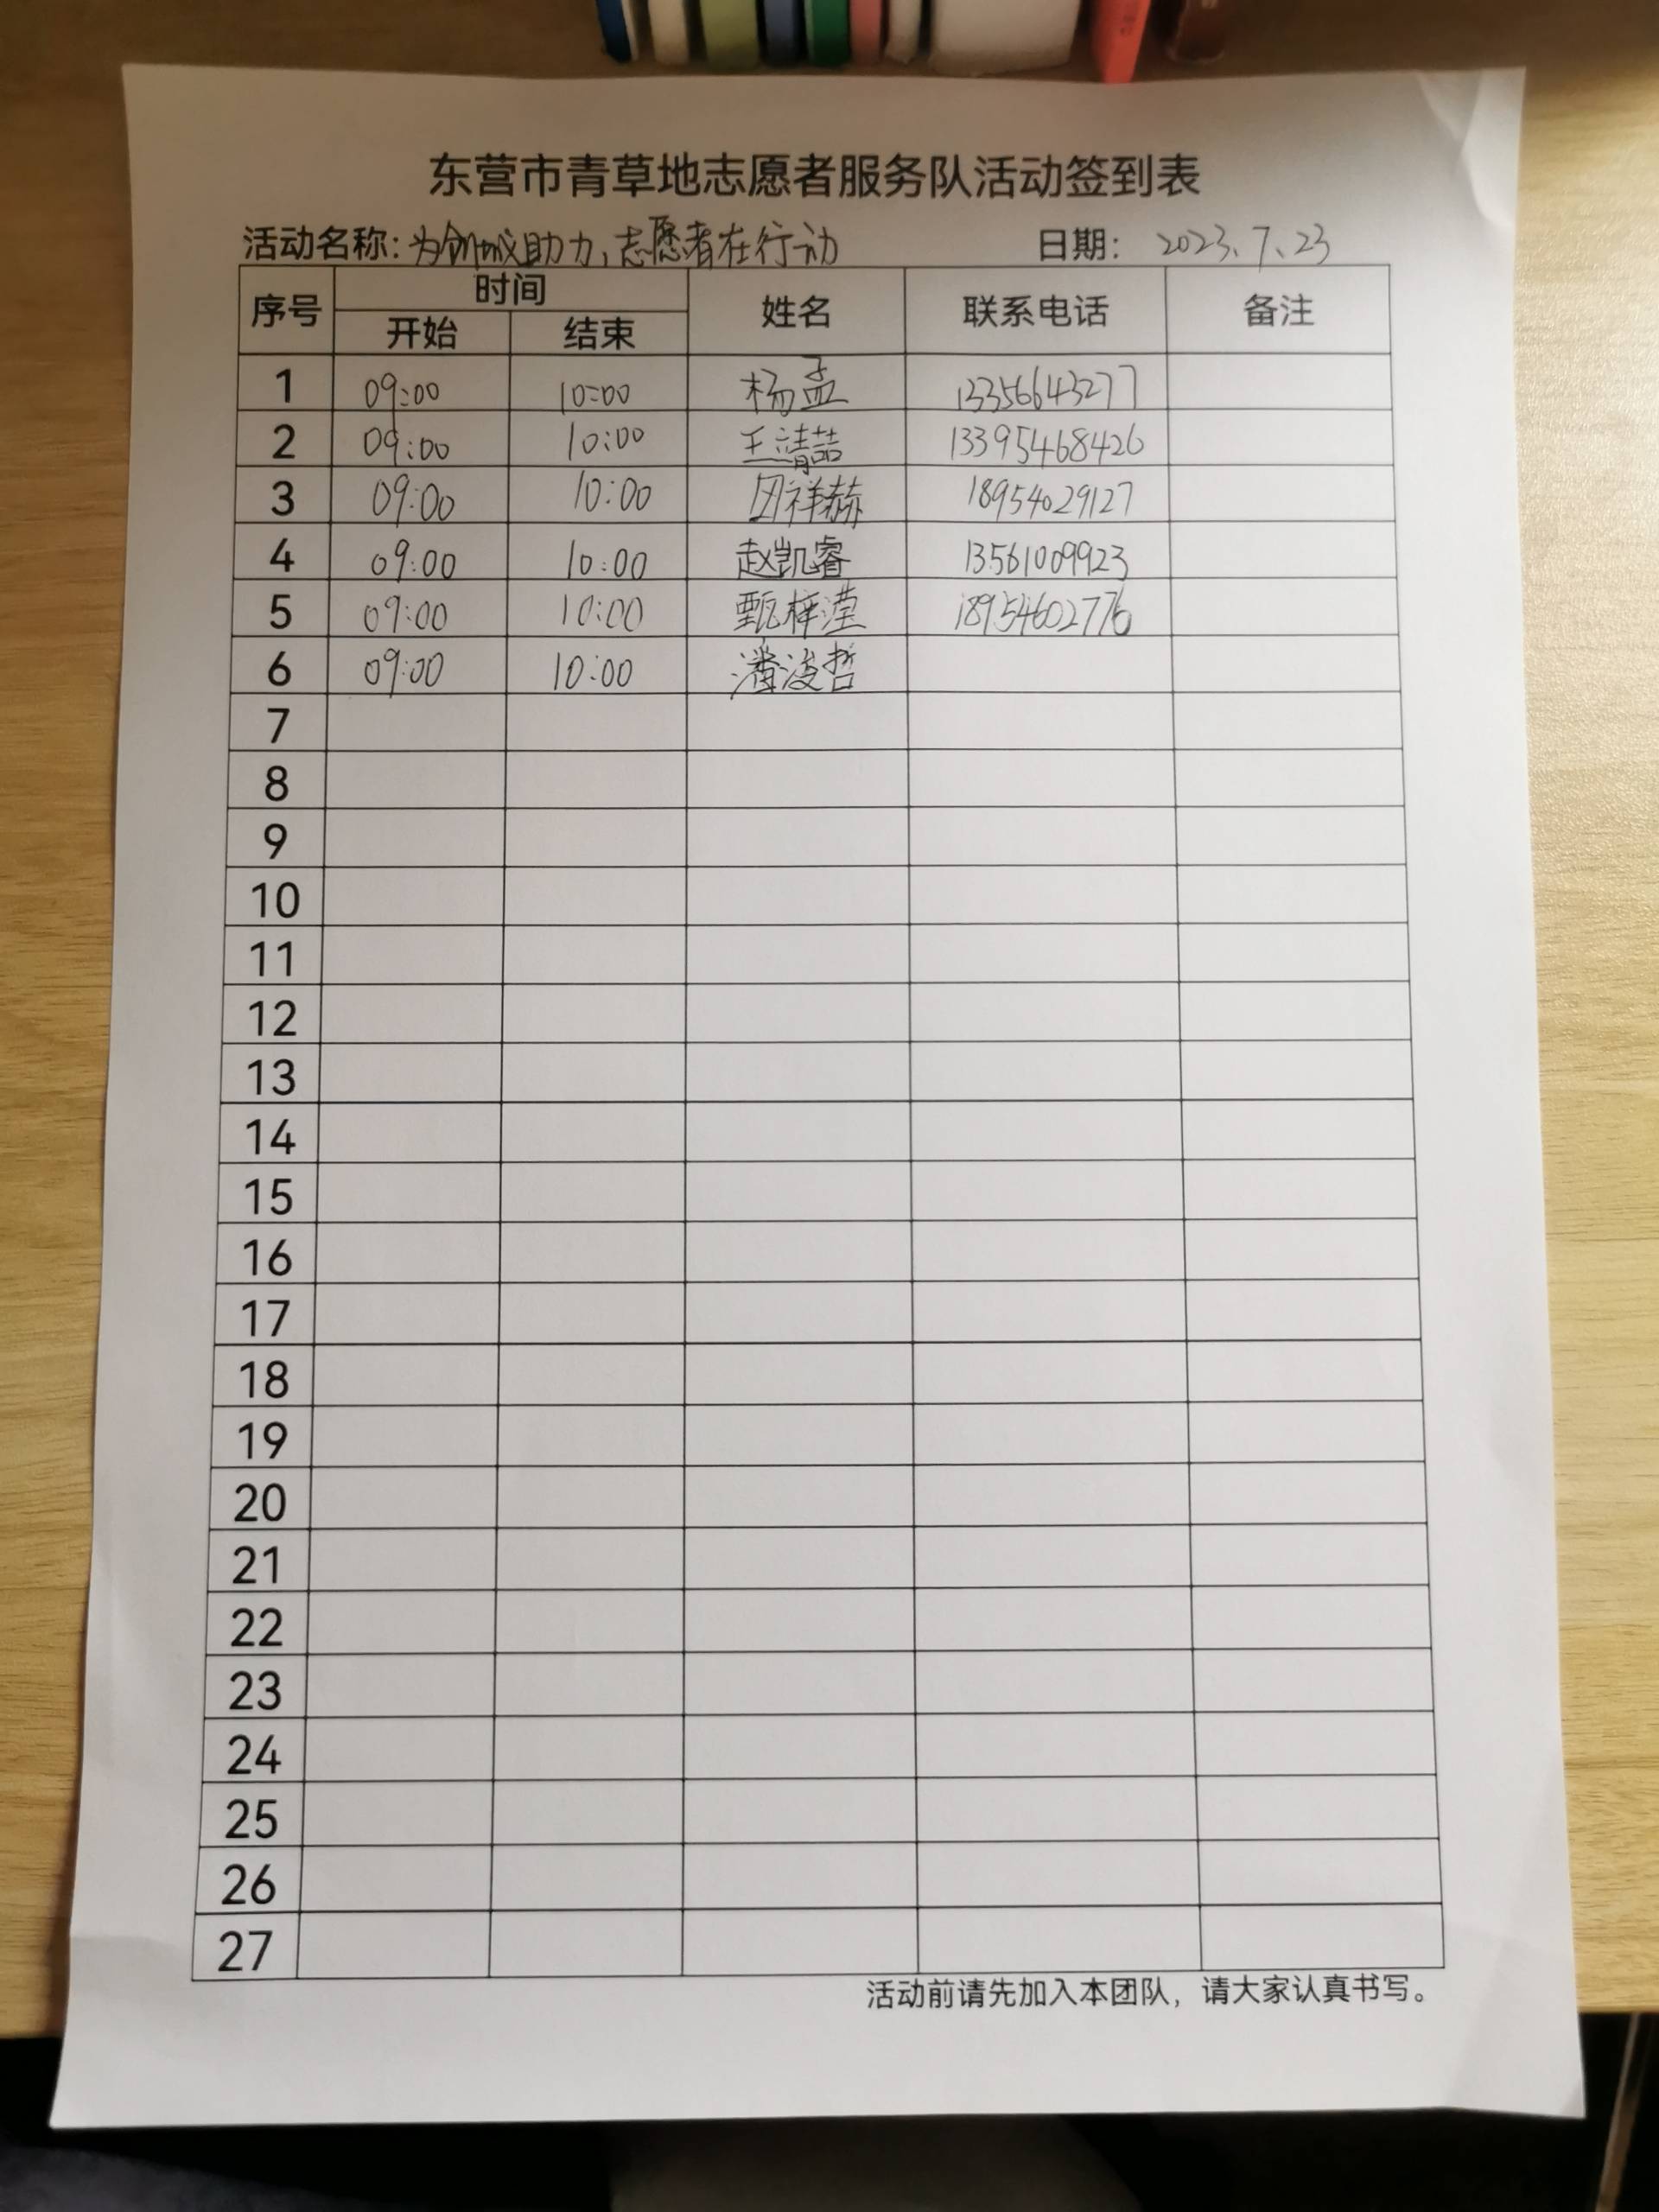 东营市青草地志愿者服务队活动签到表
活动名称: 为创城助力,志愿者在行动 日期: 2023、7、23
序号 时间 姓名 联系电话 备注
开始 结束
1 09:00 10:00 杨孟 13356643277
2 09:00 10:00 王靖喆 13395468426
3 09:00 10:00 祥赫 18954029127
4 09:00 10:00 赵凯睿 13561009923
5 09:00 10:00 甄梓滢 18954602776
6 09:00 10:00 潘浚哲
7
8
9
10
11
12
13
14
15
16
17
18
19
20
21
22
23
24
25
26
27
活动前请先加入本团队，请大家认真书写。